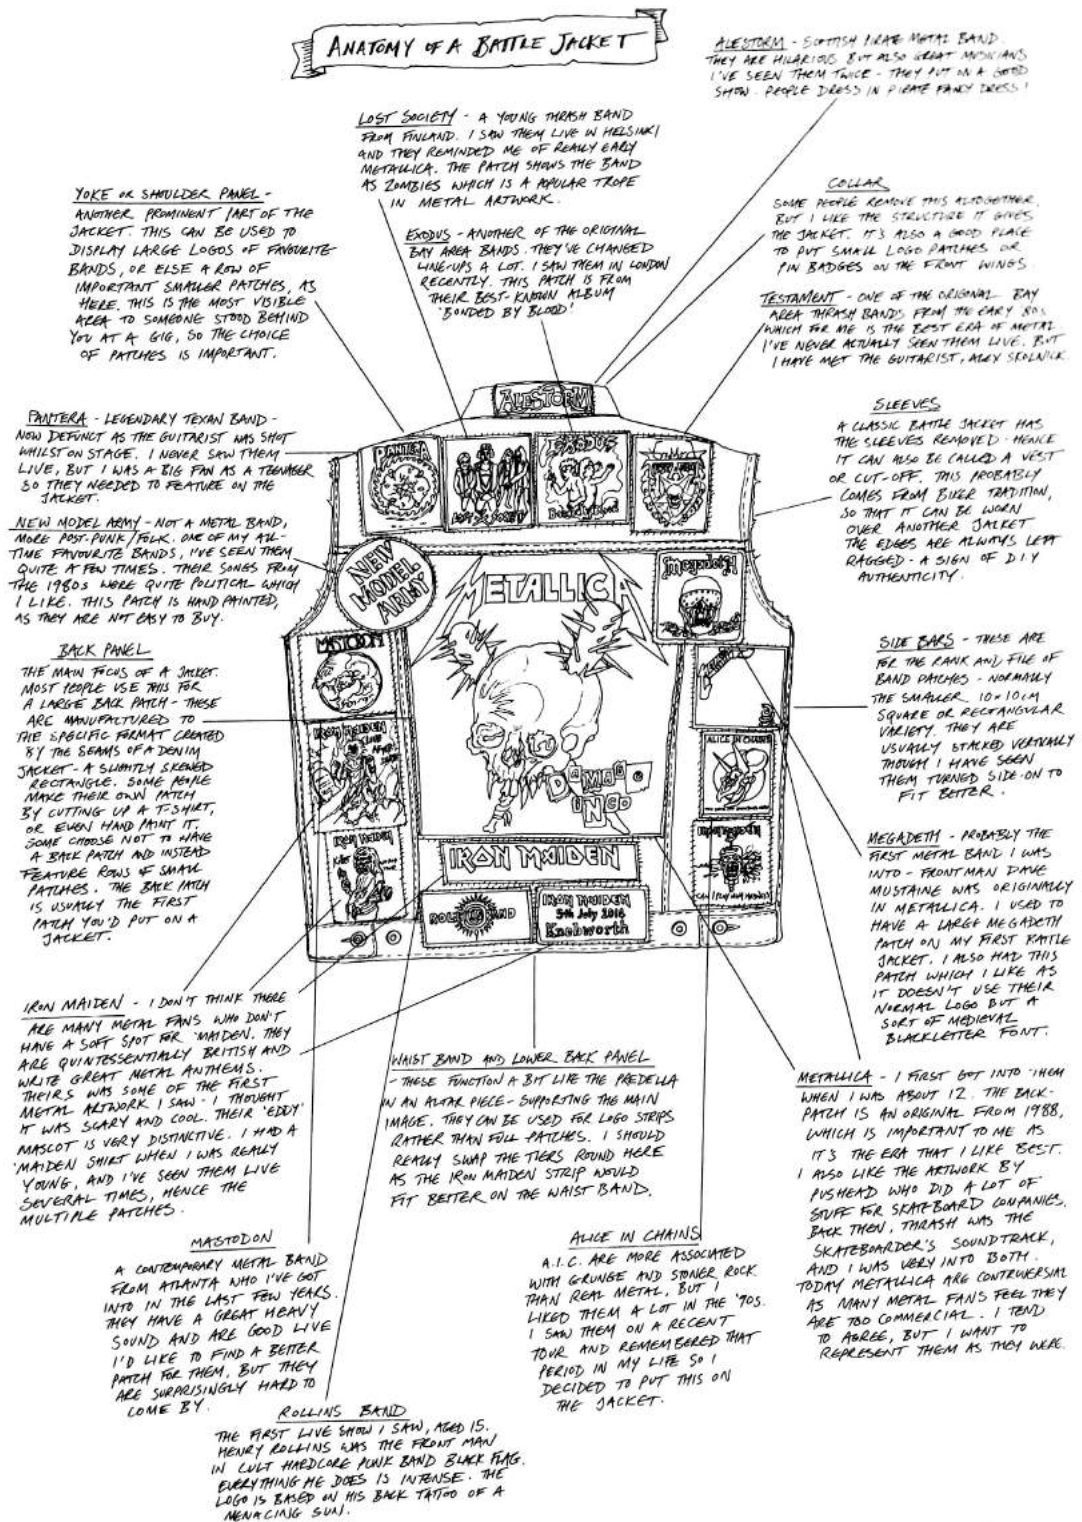 ANATOMY OF A BATTLE JACKET
ALESTORM - SCOTTISH PIRATE METAL BAND.
THEY ARE HILARIOUS BUT ALSO GREAT MUSICIANS
I'VE SEEN THEM TWICE - THEY PUT ON A GOOD
SHOW. PEOPLE DRESS IN PIRATE FANCY DRESS!
LOST SOCIETY - A YOUNG THRASH BAND
FROM FINLAND. I SAW THEM LIVE IN HELSINKI
AND THEY REMINDED ME OF REALLY EARLY
METALLICA. THE PATCH SHOWS THE BAND
AS ZOMBIES WHICH IS A POPULAR TROPE
IN METAL ARTWORK.
YOKE OR SHOULDER PANEL -
ANOTHER PROMINENT PART OF THE
JACKET. THIS CAN BE USED TO
DISPLAY LARGE LOGOS OF FAVOURITE
BANDS, OR ELSE A ROW OF
IMPORTANT SMALLER PATCHES, AS
HERE. THIS IS THE MOST VISIBLE
AREA TO SOMEONE STOOD BEHIND
YOU AT A GIG, SO THE CHOICE
OF PATCHES IS IMPORTANT.
EXODUS - ANOTHER OF THE ORIGINAL
BAY AREA BANDS. THEY'VE CHANGED
LINE-UPS A LOT. I SAW THEM IN LONDON
RECENTLY. THIS PATCH IS FROM
THEIR BEST-KNOWN ALBUM
'BONDED BY BLOOD'.
COLLAR
SOME PEOPLE REMOVE THIS ALTOGETHER.
BUT I LIKE THE STRUCTURE IT GIVES
THE JACKET. IT'S ALSO A GOOD PLACE
TO PUT SMALL LOGO PATCHES OR
PIN BADGES ON THE FRONT WINGS.
TESTAMENT - ONE OF THE ORIGINAL BAY
AREA THRASH BANDS FROM THE EARY 80s
WHICH FOR ME IS THE BEST ERA OF METAL.
I'VE NEVER ACTUALLY SEEN THEM LIVE. BUT
I HAVE MET THE GUITARIST, ALEX SKOLNICK.
PANTERA - LEGENDARY TEXAN BAND -
NOW DEFUNCT AS THE GUITARIST WAS SHOT
WHILST ON STAGE. I NEVER SAW THEM
LIVE, BUT I WAS A BIG FAN AS A TEENAGER
SO THEY NEEDED TO FEATURE ON THE
JACKET.
SLEEVES
A CLASSIC BATTLE JACKET HAS
THE SLEEVES REMOVED - HENCE
IT CAN ALSO BE CALLED A VEST
OR CUT-OFF. THIS PROBABLY
COMES FROM BIKER TRADITION,
SO THAT IT CAN BE WORN
OVER ANOTHER JACKET
THE EDGES ARE ALWAYS LEFT
RAGGED - A SIGN OF D.I.Y
AUTHENTICITY.
NEW MODEL ARMY - NOT A METAL BAND,
MORE POST-PUNK/FOLK. ONE OF MY ALL-
TIME FAVOURITE BANDS, I'VE SEEN THEM
QUITE A FEW TIMES. THEIR SONGS FROM
THE 1980s WERE QUITE POLITICAL WHICH
I LIKE. THIS PATCH IS HAND PAINTED,
AS THEY ARE NOT EASY TO BUY.
BACK PANEL
THE MAIN FOCUS OF A JACKET.
MOST PEOPLE USE THIS FOR
A LARGE BACK PATCH - THESE
ARE MANUFACTURED TO
THE SPECIFIC FORMAT CREATED
BY THE SEAMS OF A DENIM
JACKET - A SLIGHTLY SKEWED
RECTANGLE. SOME PEOPLE
MAKE THEIR OWN PATCH
BY CUTTING UP A T-SHIRT,
OR EVEN HAND PAINT IT.
SOME CHOOSE NOT TO HAVE
A BACK PATCH AND INSTEAD
FEATURE ROWS OF SMALL
PATCHES. THE BACK PATCH
IS USUALLY THE FIRST
PATCH YOU'D PUT ON A
JACKET.
ALESTORM
PANTERA
LOST SOCIETY
EXODUS
Bonded by Blood
NEW
MODEL
ARMY
METALLICA
MASTODON
IRON MAIDEN
LIVE
AFTER
DEATH
ALICE IN CHAINS
DAMAGE
INC
IRON MAIDEN
IRON MAIDEN
IRON MAIDEN
ROLLINS BAND
IRON MAIDEN
5th July 2014
Knebworth
SIDE BARS - THESE ARE
FOR THE RANK AND FILE OF
BAND PATCHES - NORMALLY
THE SMALLER 10x10CM
SQUARE OR RECTANGULAR
VARIETY. THEY ARE
USUALLY STACKED VERTICALLY
THOUGH I HAVE SEEN
THEM TURNED SIDE-ON TO
FIT BETTER.
MEGADETH - PROBABLY THE
FIRST METAL BAND I WAS
INTO - FRONTMAN DAVE
MUSTAINE WAS ORIGINALLY
IN METALLICA. I USED TO
HAVE A LARGE MEGADETH
PATCH ON MY FIRST BATTLE
JACKET. I ALSO HAD THIS
PATCH WHICH I LIKE AS
IT DOESN'T USE THEIR
NORMAL LOGO BUT A
SORT OF MEDIEVAL
BLACKLETTER FONT.
IRON MAIDEN - I DON'T THINK THERE
ARE MANY METAL FANS WHO DON'T
HAVE A SOFT SPOT FOR 'MAIDEN. THEY
ARE QUINTESSENTIALLY BRITISH AND
WRITE GREAT METAL ANTHEMS.
THEIRS WAS SOME OF THE FIRST
METAL ARTWORK I SAW - I THOUGHT
IT WAS SCARY AND COOL. THEIR 'EDDY'
MASCOT IS VERY DISTINCTIVE. I HAD A
'MAIDEN SHIRT WHEN I WAS REALLY
YOUNG, AND I'VE SEEN THEM LIVE
SEVERAL TIMES, HENCE THE
MULTIPLE PATCHES.
WAIST BAND AND LOWER BACK PANEL
- THESE FUNCTION A BIT LIKE THE PREDELLA
IN AN ALTAR PIECE - SUPPORTING THE MAIN
IMAGE. THEY CAN BE USED FOR LOGO STRIPS
RATHER THAN FULL PATCHES. I SHOULD
REALLY SWAP THE TIERS ROUND HERE
AS THE IRON MAIDEN STRIP WOULD
FIT BETTER ON THE WAIST BAND.
METALLICA - I FIRST GOT INTO THEM
WHEN I WAS ABOUT 12. THE BACK-
PATCH IS AN ORIGINAL FROM 1988,
WHICH IS IMPORTANT TO ME AS
IT'S THE ERA THAT I LIKE BEST.
I ALSO LIKE THE ARTWORK BY
PUSHEAD WHO DID A LOT OF
STUFF FOR SKATEBOARD COMPANIES.
BACK THEN, THRASH WAS THE
SKATEBOARDER'S SOUNDTRACK,
AND I WAS VERY INTO BOTH.
TODAY METALLICA ARE CONTROVERSIAL
AS MANY METAL FANS FEEL THEY
ARE TOO COMMERCIAL. I TEND
TO AGREE, BUT I WANT TO
REPRESENT THEM AS THEY WERE.
MASTODON
A CONTEMPORARY METAL BAND
FROM ATLANTA WHO I'VE GOT
INTO IN THE LAST FEW YEARS.
THEY HAVE A GREAT HEAVY
SOUND AND ARE GOOD LIVE
I'D LIKE TO FIND A BETTER
PATCH FOR THEM, BUT THEY
ARE SURPRISINGLY HARD TO
COME BY.
ALICE IN CHAINS
A.I.C. ARE MORE ASSOCIATED
WITH GRUNGE AND STONER ROCK
THAN REAL METAL, BUT I
LIKED THEM A LOT IN THE '90s.
I SAW THEM ON A RECENT
TOUR AND REMEMBERED THAT
PERIOD IN MY LIFE SO I
DECIDED TO PUT THIS ON
THE JACKET.
ROLLINS BAND
THE FIRST LIVE SHOW I SAW, AGED 15.
HENRY ROLLINS WAS THE FRONT MAN
IN CULT HARDCORE PUNK BAND BLACK FLAG.
EVERYTHING HE DOES IS INTENSE. THE
LOGO IS BASED ON HIS BACK TATTOO OF A
MENACING SUN.